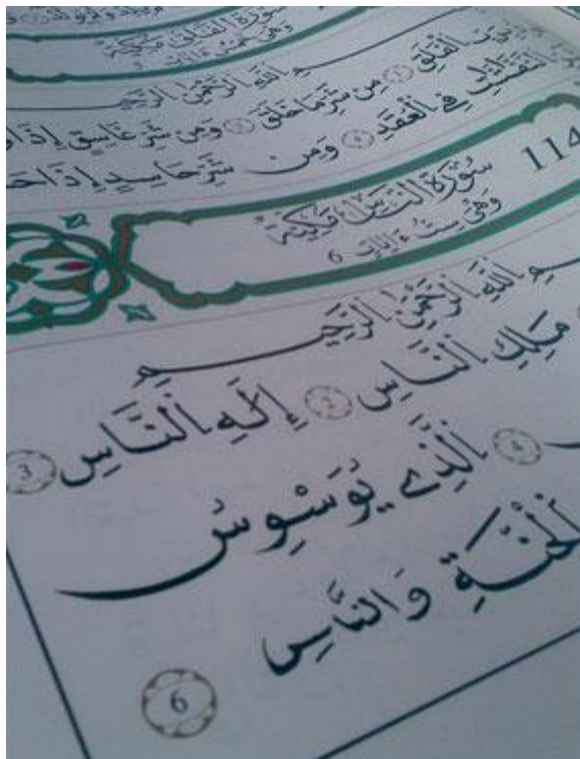 سُورَةُ الْفَلَقِ مَكِّيَّةٌ
وَهْيَ خَمْسُ ءَايَاتٍ
اللَّهِ الرَّحْمَٰنِ الرَّحِيمِ
الْفَلَقِ 1 مِن شَرِّ مَا خَلَقَ 2 وَمِن شَرِّ غَاسِقٍ إِذَا
النَّفَّٰثَٰتِ فِي الْعُقَدِ 4 وَمِن شَرِّ حَاسِدٍ إِذَا
114 سُورَةُ النَّاسِ مَكِّيَّةٌ
وَهْيَ سِتُّ ءَايَاتٍ 6
اللَّهِ الرَّحْمَٰنِ الرَّحِيمِ
مَلِكِ النَّاسِ 2 إِلَٰهِ النَّاسِ 3
4 الَّذِے يُوَسْوِسُ
الْجِنَّةِ وَالنَّاسِ 6